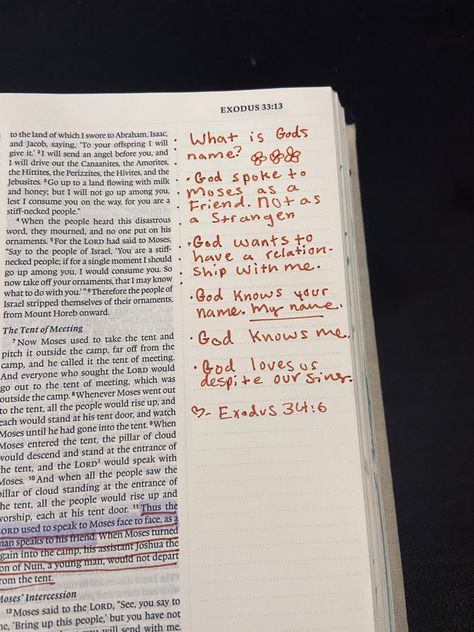 EXODUS 33:13
to the land of which I swore to Abraham, Isaac,
and Jacob, saying, 'To your offspring I will
give it.' 2 I will send an angel before you, and
I will drive out the Canaanites, the Amorites,
the Hittites, the Perizzites, the Hivites, and the
Jebusites. 3 Go up to a land flowing with milk
and honey; but I will not go up among you,
lest I consume you on the way, for you are a
stiff-necked people."
4 When the people heard this disastrous
word, they mourned, and no one put on his
ornaments. 5 For the LORD had said to Moses,
"Say to the people of Israel, 'You are a stiff-
necked people; if for a single moment I should
go up among you, I would consume you. So
now take off your ornaments, that I may know
what to do with you.'" 6 Therefore the people of
Israel stripped themselves of their ornaments,
from Mount Horeb onward.
The Tent of Meeting
7 Now Moses used to take the tent and
pitch it outside the camp, far off from the
camp, and he called it the tent of meeting.
And everyone who sought the LORD would
go out to the tent of meeting, which was
outside the camp. 8 Whenever Moses went out
to the tent, all the people would rise up, and
each would stand at his tent door, and watch
Moses until he had gone into the tent. 9 When
Moses entered the tent, the pillar of cloud
would descend and stand at the entrance of
the tent, and the LORD would speak with
Moses. 10 And when all the people saw the
pillar of cloud standing at the entrance of
the tent, all the people would rise up and
worship, each at his tent door. 11 Thus the
LORD used to speak to Moses face to face, as a
man speaks to his friend. When Moses turned
again into the camp, his assistant Joshua the
son of Nun, a young man, would not depart
from the tent.
Moses' Intercession
12 Moses said to the LORD, "See, you say to
me, 'Bring up this people,' but you have not
will send with me.
What is Gods
name?
· God spoke to
Moses as a
Friend. Not as
a Stranger
· God wants to
have a relation-
ship with me.
· God knows your
name. My name.
· God knows me.
· God loves us
despite our sins.
♡- Exodus 34:6